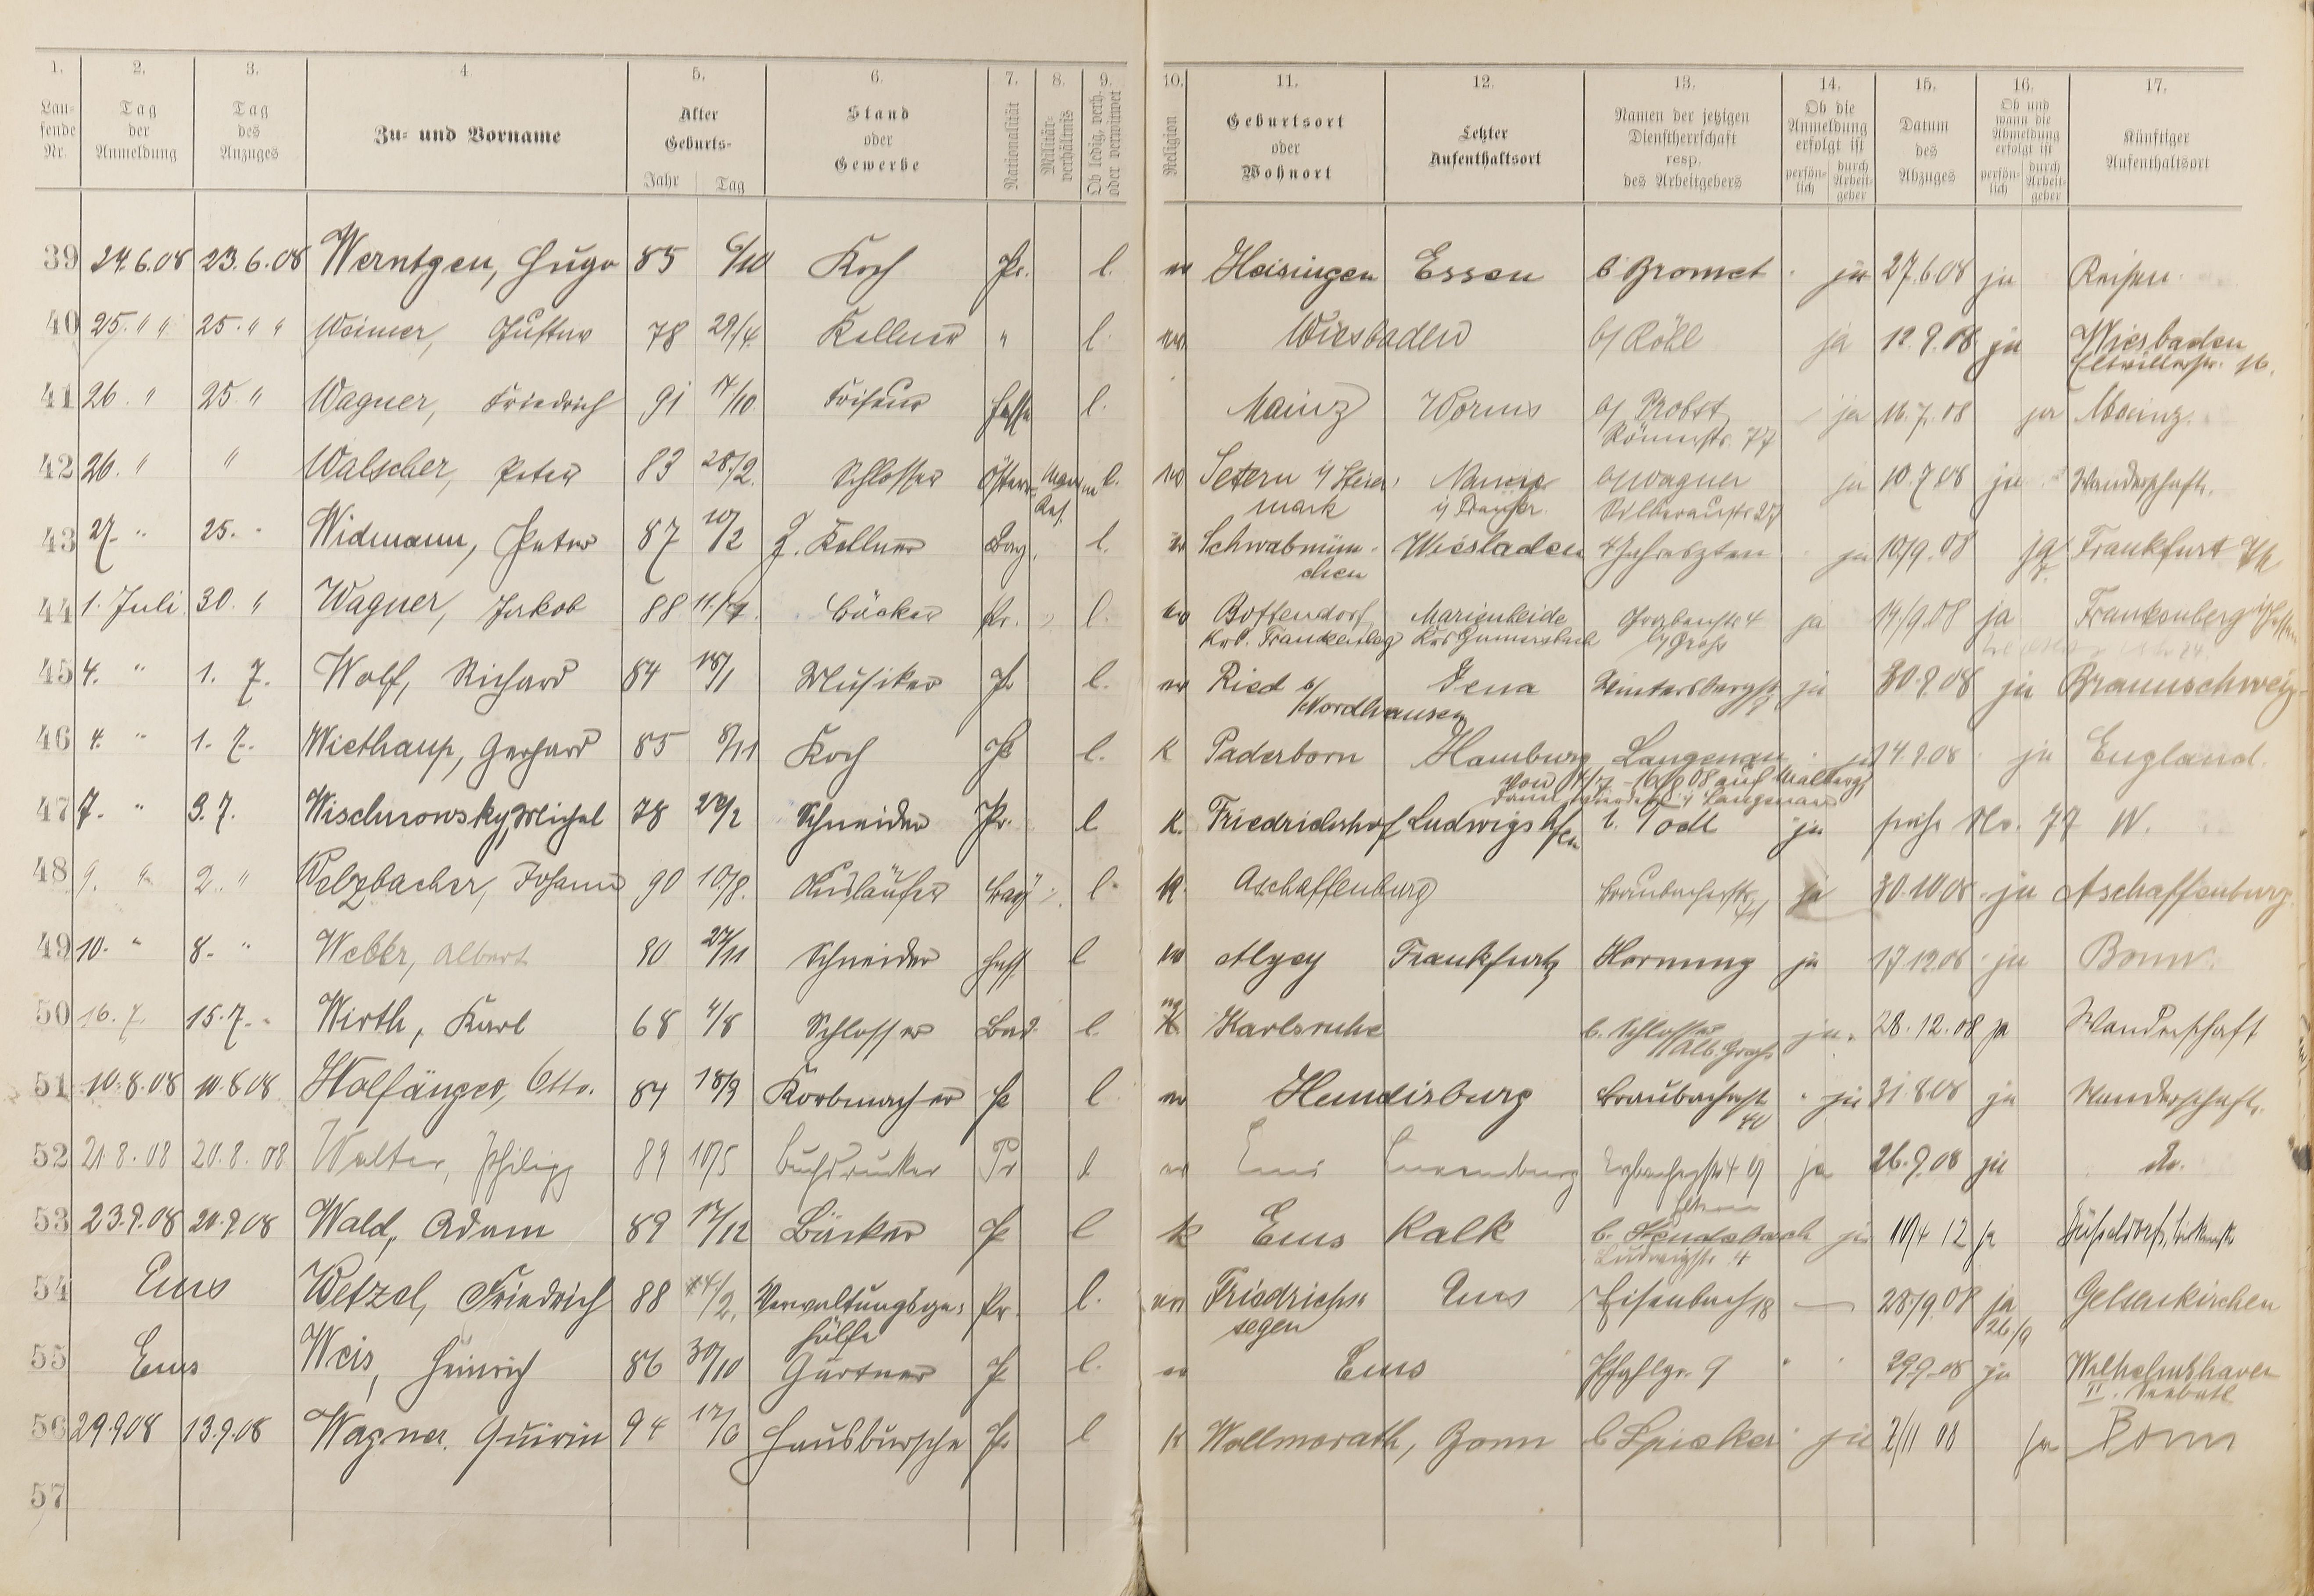 1. 2. 3. 4. 5. 6. 7. 8. 9. 10. 11. 12. 13. 14. 15. 16. 17.
Lau-
fende
Nr.
Tag
der
Anmeldung
Tag
des
Anzuges
Zu- und Vorname
Alter
Geburts-
Jahr Tag
Stand
oder
Gewerbe
Nationalität
Militär-
verhältnis
Ob ledig, verh.
oder verwitwet
Religion
Geburtsort
oder
Wohnort
Letzter
Aufenthaltsort
Namen der jetzigen
Dienstherrschaft
resp.
des Arbeitgebers
Ob die
Anmeldung
erfolgt ist
persön-
lich
durch
Arbeit-
geber
Datum
des
Abzuges
Ob und
wann die
Abmeldung
erfolgt ist
persön-
lich
durch
Arbeit-
geber
Künftiger
Aufenthaltsort
39 24.6.08 23.6.08 Werntgen, Hugo 85 6/10 Koch Pr. l. Heisingen Essen b Bromet ja 27.6.08 ja Reisen
40 25. " " 25. " " Weimer, Gustav 78 29/4. Kellner " l. Wiesbaden b/ Röhl ja 12.9.08 ja Wiesbaden
Eltvillerstr. 16.
41 26. " 25. " Wagner, Friedrich 91 14/10 Friseur Hesse l. Mainz Worms b/ Probst ja 16.7.08 ja Mainz.
Römerstr. 77
42 26. " " Walscher, Peter 83 28./2. Schlosser Österr. l. Setern i/ Steier- b/ Wagner ja 10.7.08 ja Wanderschaft.
mark Silberaustr 27
43 27. " 25. " Widmann, Peter 87 10/2 Z. Kellner Bay. l. Schwabmün- Wiesbaden 4 Jahreszten ja 10/9.08 ja Frankfurt
chen
44 1. Juli 30. " Wagner, Jakob 88 Bäcker Pr. l. Bottendorf Marienheide ja 14/9.08 ja Frankenberg
Krs. Frankenberg Krs Gumersbach b/ Groß
45 4. " 1. 7. Wolf, Richard 84 18/1 Musiker Pr l. Ried b/ Jena Wintersbergstr ja 30.9.08 ja Braunschweig
Nordhausen
46 4. " 1. 7. Wiethaup, Gerhard 85 8/11 Koch Pr l. K Paderborn Hamburg Langenau ja 14.9.08 ja England.
47 7. " 3. 7. Wischnowsky, Michel 78 Schneider Pr. l K. Friedrichshof Ludwigshafen b. Todt ja siehe No. 77 W.
48 9. " 2. " Welzbacher, Johann 90 10/8. Ausläufer Bay l. K. Aschaffenburg Braubacherstr. ja 30.10.08 ja Aschaffenburg
49 10. " 8. " Weber, Albert 80 27/11 Schneider Hess. l Alzey Frankfurt Hornung ja 17.12.08 ja Bonn.
50 16. 7. 15. 7. Wirth, Karl 68 4/8 Schlosser Bad. l. Karlsruhe b. Schlosser ja. 28.12.08 ja Wanderschaft
Alb. Groß
51 10.8.08 10.8.08 Wolfänger, Otto. 84 18/9 Korbmacher Pr l. Hundisburg Braubacherst ja 31.8.08 ja Wanderschaft.
40
52 21.8.08 20.8.08 Walter, Philipp 89 10/5 Buchdrucker Pr l. Ems Luxemburg ja 26.9.08 ja do.
53 23.9.08 20.9.08 Wald, Adam 89 17/12 Bäcker Pr l k Ems Kalk ja 10/4 12 ja
Ludwigstr. 4
54 Ems Wetzel, Friedrich 88 Verwaltungsge- Pr. l. Friedrichs- Ems Eisenbach 18 — 28/9.08 ja Gelsenkirchen
hülfe segen 26/9
55 Ems Weis, Heinrich 86 30/10 Gärtner Pr l. Ems 29.9.08 ja Wilhelmshaven
56 29.9.08 13.9.08 Wagner. Quirin 94 17/6 Hausbursche Pr l k Wollmerath, Bonn b Spieker ja 2/11 08 ja Bonn
57